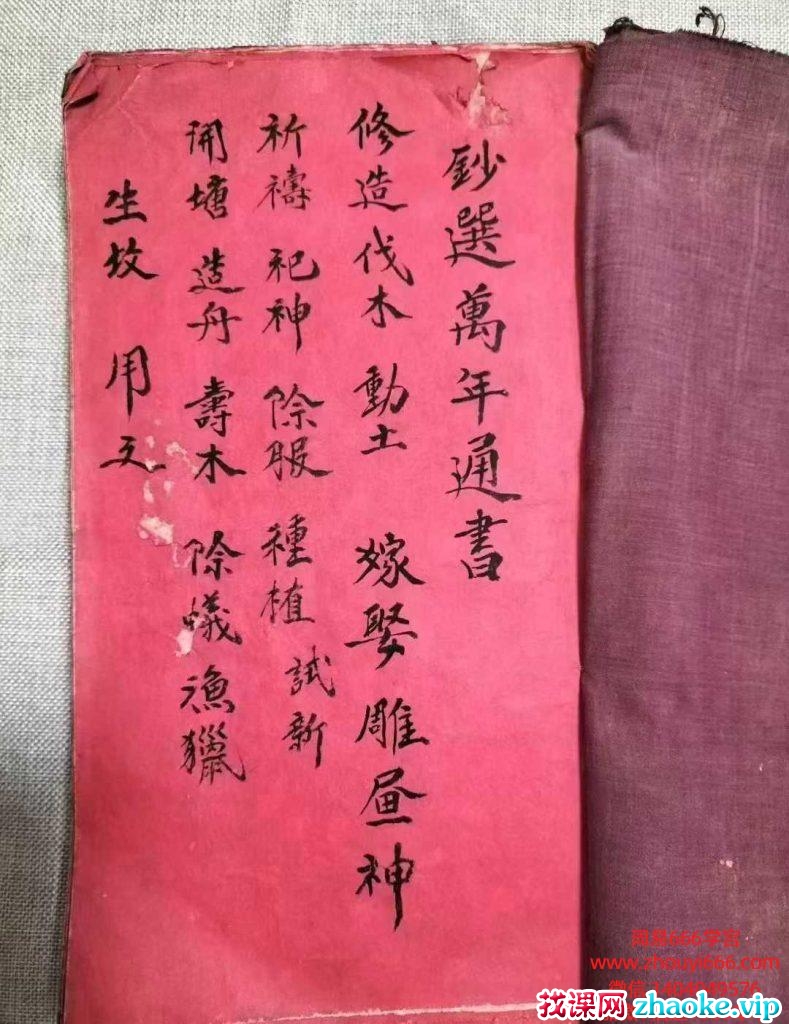 鈔選萬年通書
修造伐木 動土 嫁娶 雕昼神
祈禱 祀神 除服 種植 試新
開塘 造舟 壽木 除蟻 漁獵
生坟 用
www.zhouyi666.com
找课网 zhaoke.vip